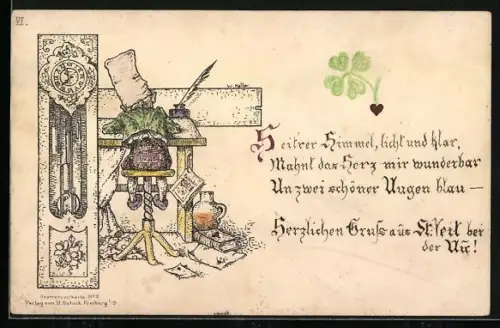 VI.
W. Haller
Heitrer Himmel, licht und klar,
Mahnt das Herz mir wunderbar
An zwei schöner Augen blau —
Herzlichen Gruss aus St. Veit bei
der Au!
Verlag von B. Schick, Freiburg i/B